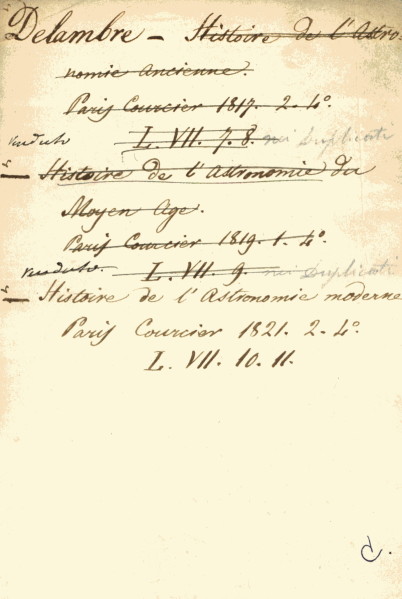 Delambre – Histoire de l'Astro-
nomie Ancienne.
Paris Courcier 1817. 2. 4º.
vendute L. VII. 7. 8. nei Duplicati
— Histoire de l'Astronomie du
Moyen Age.
Paris Courcier 1819. 1. 4º.
vendute. L. VII. 9. nei Duplicati
— Histoire de l'Astronomie moderne
Paris Courcier 1821. 2. 4º.
L. VII. 10. 11.
C.